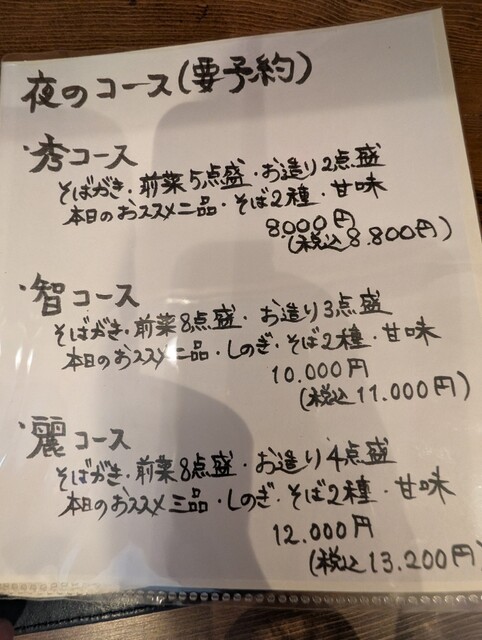 夜のコース(要予約)
・秀コース
そばがき・前菜5点盛・お造り2点盛
本日のおススメ二品・そば2種・甘味
8.000円
(税込8.800円)
・智コース
そばがき・前菜8点盛・お造り3点盛
本日のおススメ二品・しのぎ・そば2種・甘味
10.000円
(税込11.000円)
・麗コース
そばがき・前菜8点盛・お造り4点盛
本日のおススメ三品・しのぎ・そば2種・甘味
12.000円
(税込13.200円)